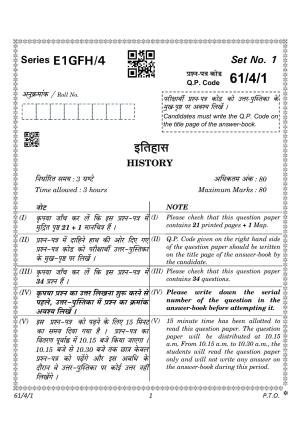 Series E1GFH/4
Set No. 1
प्रश्न-पत्र कोड
Q.P. Code 61/4/1
अनुक्रमांक / Roll No.
परीक्षार्थी प्रश्न-पत्र कोड को उत्तर-पुस्तिका के
मुख-पृष्ठ पर अवश्य लिखें ।
Candidates must write the Q.P. Code on
the title page of the answer-book.
इतिहास
HISTORY
निर्धारित समय : 3 घण्टे
अधिकतम अंक : 80
Time allowed : 3 hours
Maximum Marks : 80
नोट
NOTE
(I) कृपया जाँच कर लें कि इस प्रश्न-पत्र में
मुद्रित पृष्ठ 21 + 1 मानचित्र हैं ।
(I) Please check that this question paper
contains 21 printed pages + 1 Map.
(II) प्रश्न-पत्र में दाहिने हाथ की ओर दिए गए
प्रश्न-पत्र कोड को परीक्षार्थी उत्तर-पुस्तिका
के मुख-पृष्ठ पर लिखें ।
(II) Q.P. Code given on the right hand side
of the question paper should be written
on the title page of the answer-book by
the candidate.
(III) कृपया जाँच कर लें कि इस प्रश्न-पत्र में
34 प्रश्न हैं ।
(III) Please check that this question paper
contains 34 questions.
(IV) कृपया प्रश्न का उत्तर लिखना शुरू करने से
पहले, उत्तर-पुस्तिका में प्रश्न का क्रमांक
अवश्य लिखें ।
(IV) Please write down the serial
number of the question in the
answer-book before attempting it.
(V) इस प्रश्न-पत्र को पढ़ने के लिए 15 मिनट
का समय दिया गया है । प्रश्न-पत्र का
वितरण पूर्वाह्न में 10.15 बजे किया जाएगा ।
10.15 बजे से 10.30 बजे तक छात्र केवल
प्रश्न-पत्र को पढ़ेंगे और इस अवधि के
दौरान वे उत्तर-पुस्तिका पर कोई उत्तर नहीं
लिखेंगे ।
(V) 15 minute time has been allotted to
read this question paper. The question
paper will be distributed at 10.15
a.m. From 10.15 a.m. to 10.30 a.m., the
students will read the question paper
only and will not write any answer on
the answer-book during this period.
61/4/1
1
P.T.O.